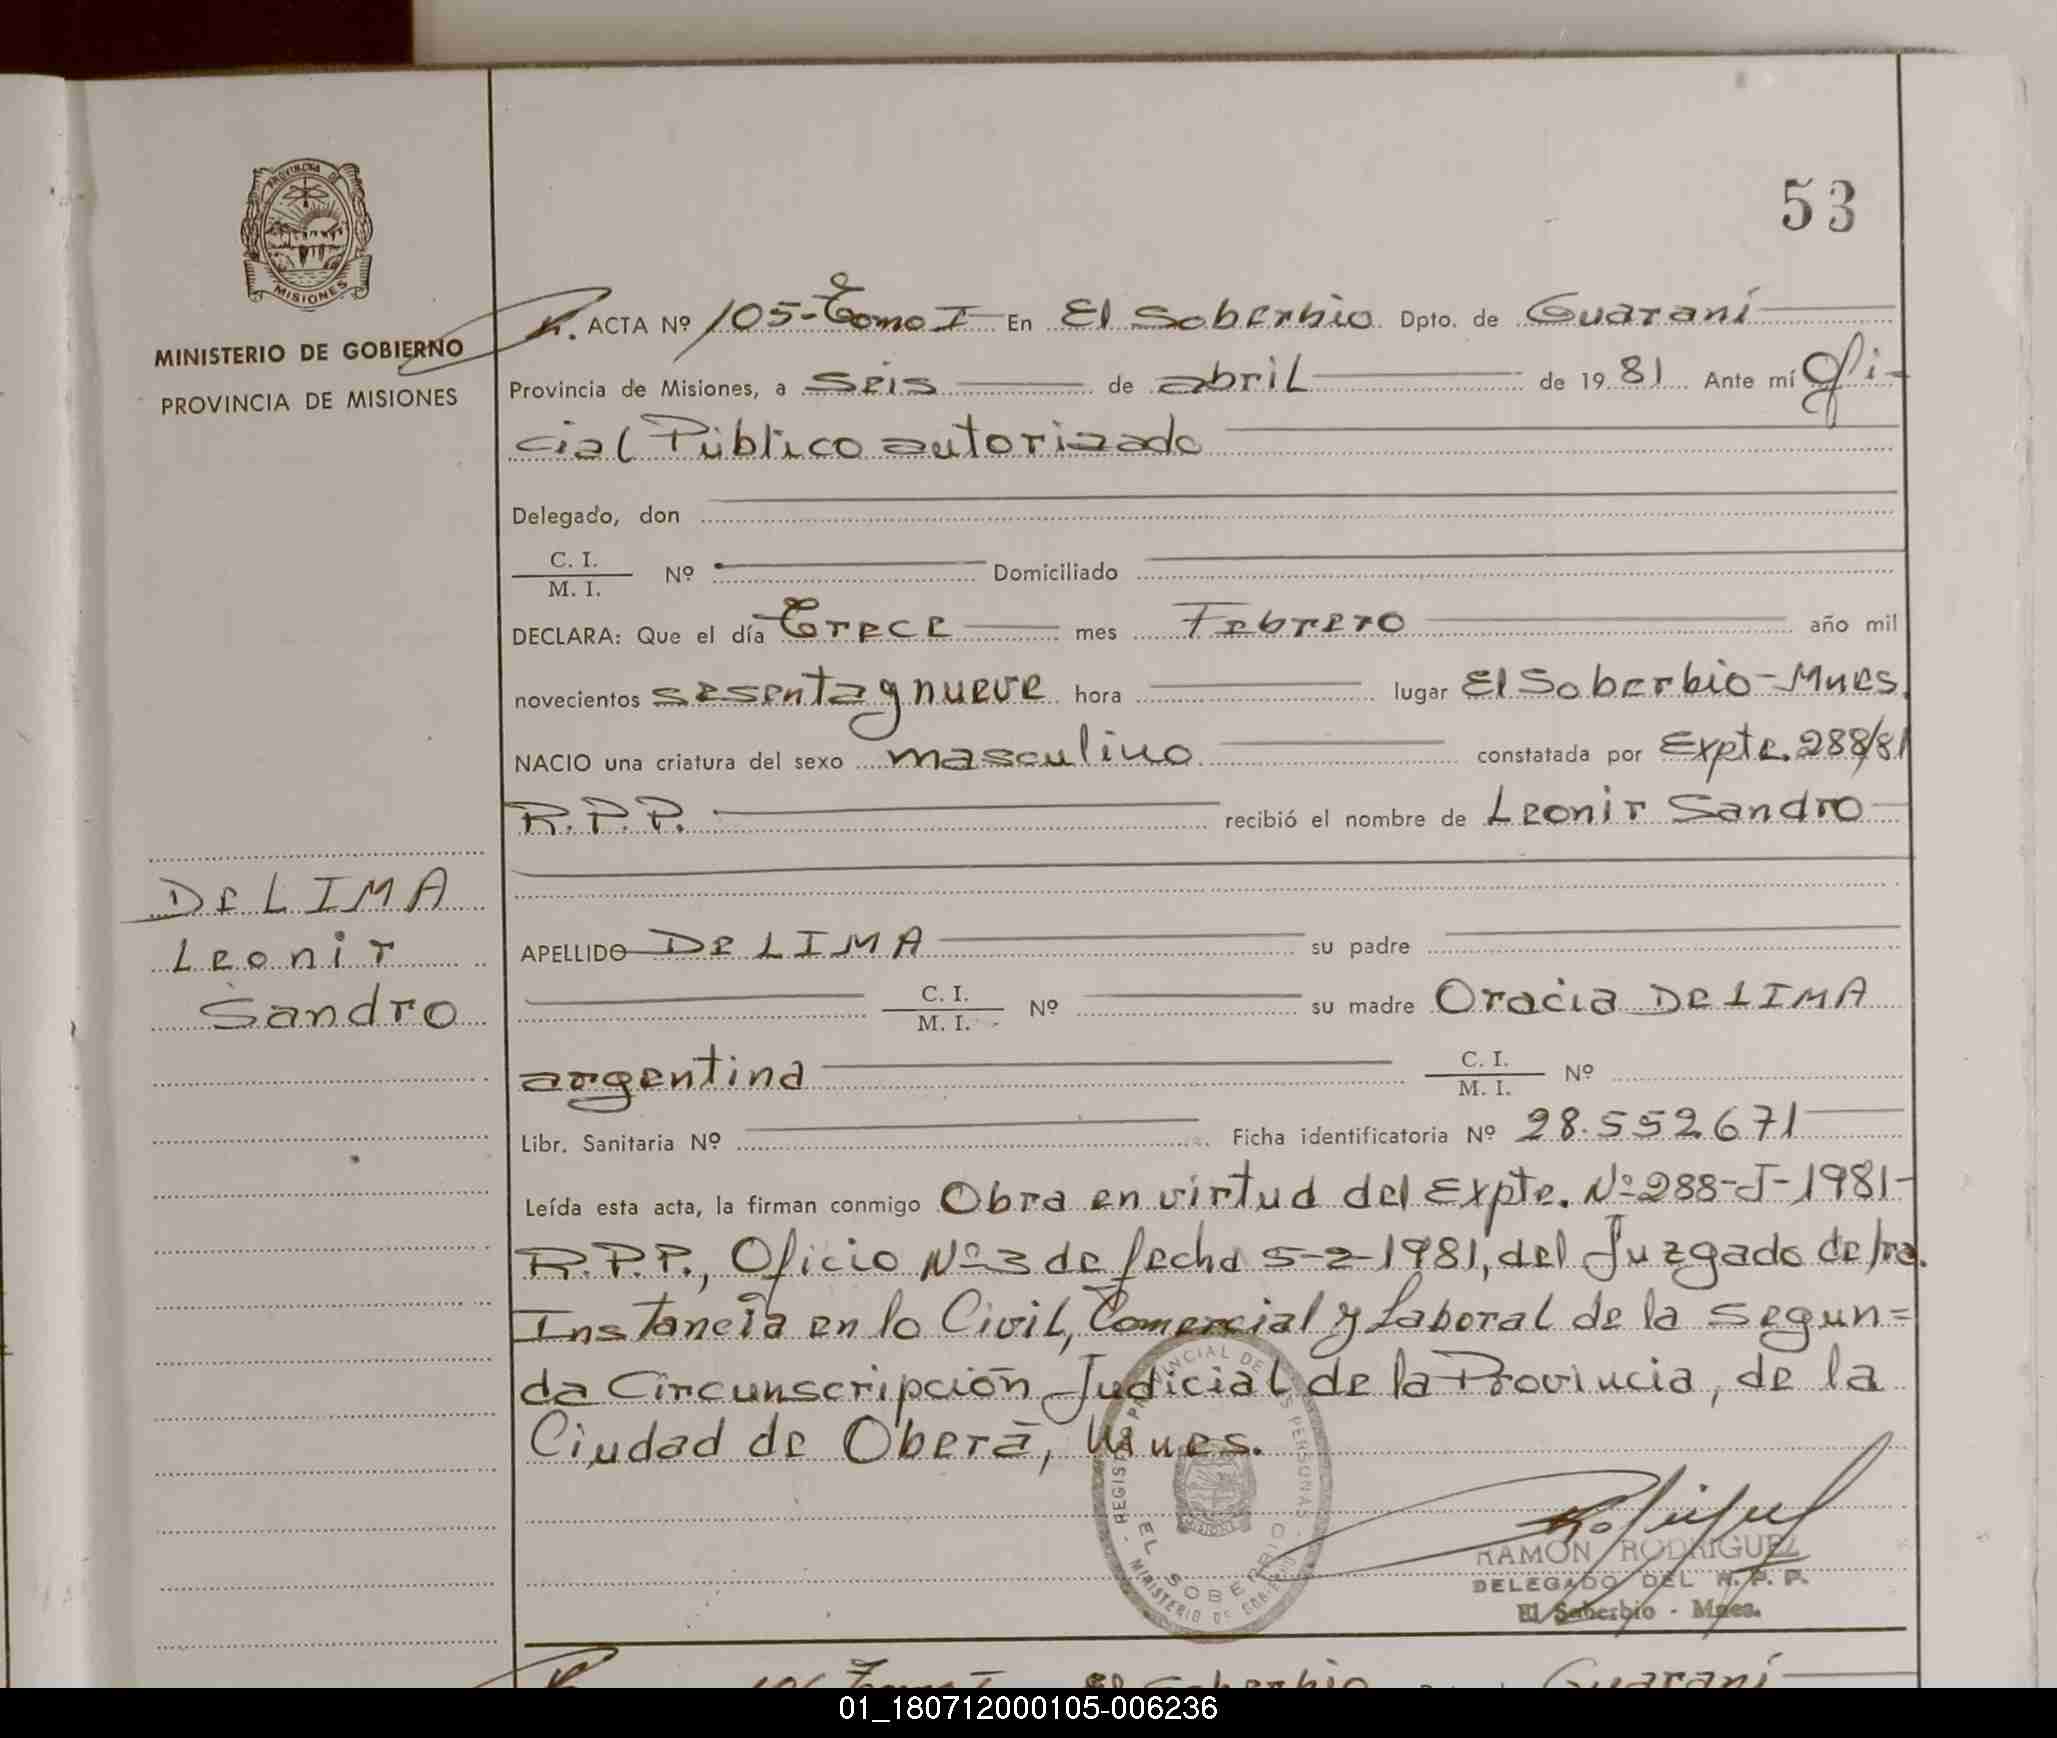 53
PROVINCIA DE
MISIONES
MINISTERIO DE GOBIERNO
PROVINCIA DE MISIONES
ACTA Nº 105-Tomo I En El Soberbio Dpto. de Guaraní
Provincia de Misiones, a seis de abril de 1981 Ante mí Ofi-
cial Público autorizado
Delegado, don
C. I.
M. I. Nº Domiciliado
DECLARA: Que el día Trece mes Febrero año mil
novecientos sesenta y nueve hora lugar El Soberbio-Mnes.
NACIO una criatura del sexo masculino constatada por Expte. 288/81
R.P.P. recibió el nombre de Leonir Sandro
DeLIMA
Leonir
Sandro
APELLIDO DeLIMA su padre
C. I.
M. I. Nº su madre Oracia DeLIMA
argentina C. I.
M. I. Nº
Libr. Sanitaria Nº Ficha identificatoria Nº 28.552.671
Leída esta acta, la firman conmigo Obra en virtud del Expte. Nº 288-J-1981-
R.P.P., Oficio Nº 3 de fecha 5-2-1981, del Juzgado de 1ra.
Instancia en lo Civil, Comercial y Laboral de la Segun=
da Circunscripción Judicial de la Provincia, de la
Ciudad de Oberá, Mnes.
REGISTRO PROVINCIAL DE LAS PERSONAS
EL SOBERBIO
MINISTERIO DE GOBIERNO
RAMON RODRIGUEZ
DELEGADO DEL R. P. P.
El Soberbio - Mnes.
106 Tomo I El Soberbio Guaraní
01_180712000105-006236